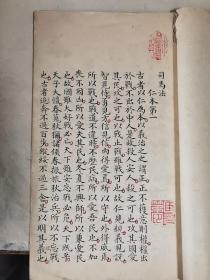 司馬法
仁本第一
古者以仁為本以義治之之謂正正不獲意則權權出
於戰不出於中人是故殺人安人殺之可也攻其國愛
其民攻之可也以戰止戰雖戰可也故仁見親義見說
智見恃勇見方信見信內得愛焉所以守也外得威焉
所以戰也戰道不違時不歷民病所以愛吾民也不加
喪不因凶所以愛夫其民也冬夏不興師所以兼愛民
也故國雖大好戰必亡天下雖安忘戰必危天下既平
天子大愷春蒐秋獮諸侯春振旅秋治兵所以不忘戰
也古者逐奔不過百步縱綏不過三舍是以明其禮也